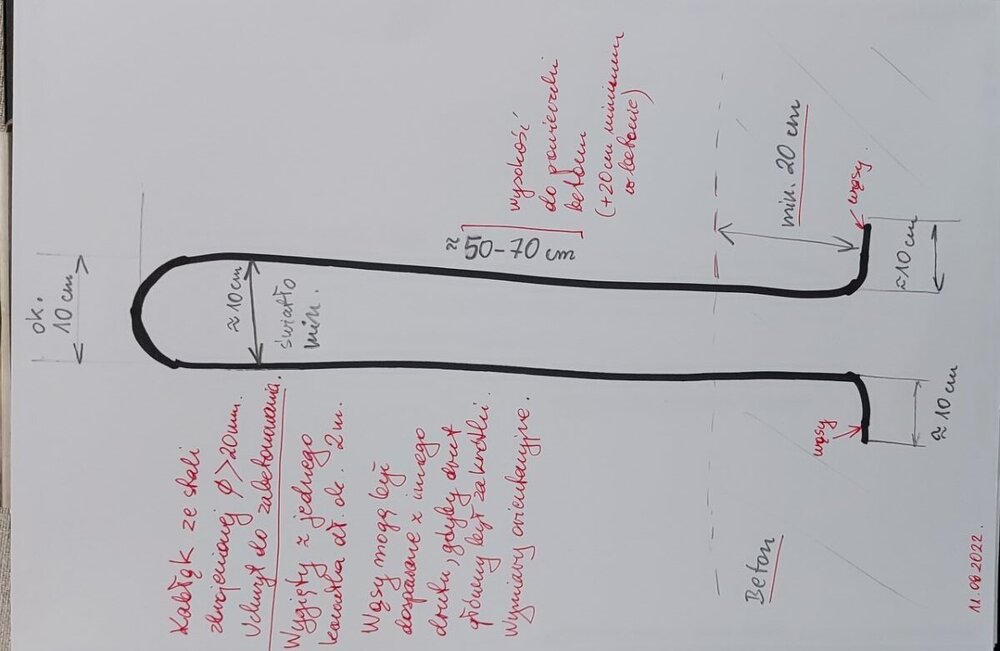 ok.
10 cm
≈10cm
światło
min.
≈ 50-70 cm
wysokość
do powierzchni
betonu
(+20cm minimum
w betonie)
min. 20 cm
wąsy
≈10 cm
≈10 cm
wąsy
Beton
Kabłąk ze stali
zbrojeniowej ϕ>20mm.
Uchwyt do zabetonowania.
Wygięty z jednego
kawałka dł. ok. 2m.
Wąsy mogą być
dospawane z innego
drutu, gdyby drut
główny był za krótki.
Wymiary orientacyjne.
11.06.2022.